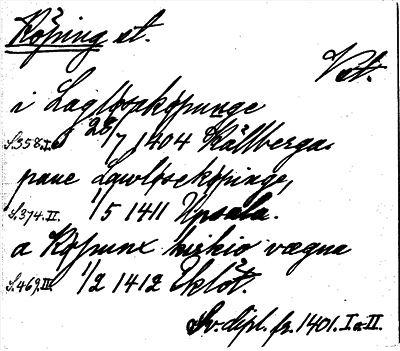 Köping st.
Vst.
i Laglösaköpunge
S.358.I. 28/7 1404 Källberga.
pane Lawlöseköpinge,
S.374.II. 1/5 1411 Upsala.
a Köpunx kirkio vægna
S.469.III. 1/2 1412 Eklöt.
Sv. dipl. fr. 1401. I o. II.